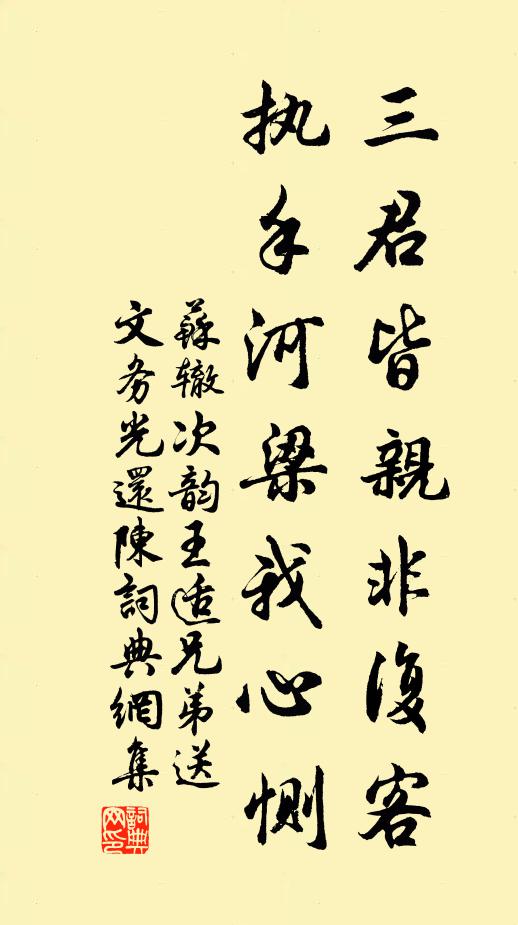 三君皆親非復客
执手河梁我心恻
蘇辙次韵王适兄弟送
文务光還陳詞典網集
詞典
网印